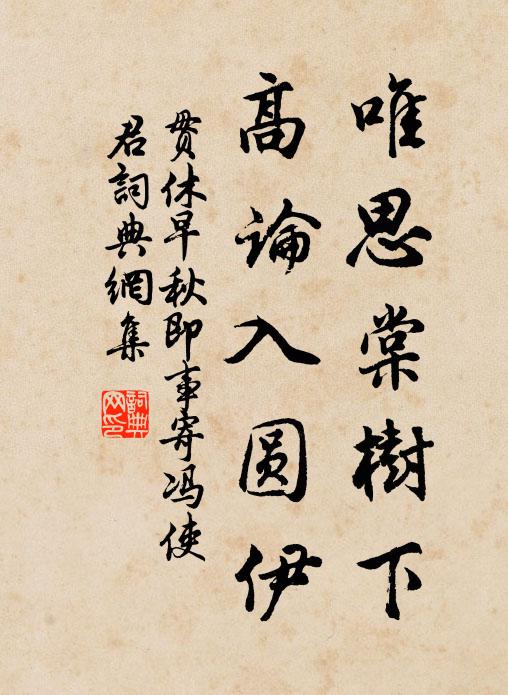 唯思棠樹下
高論入圆伊
贯休早秋即事寄冯使
君詞典網集
詞典
网印